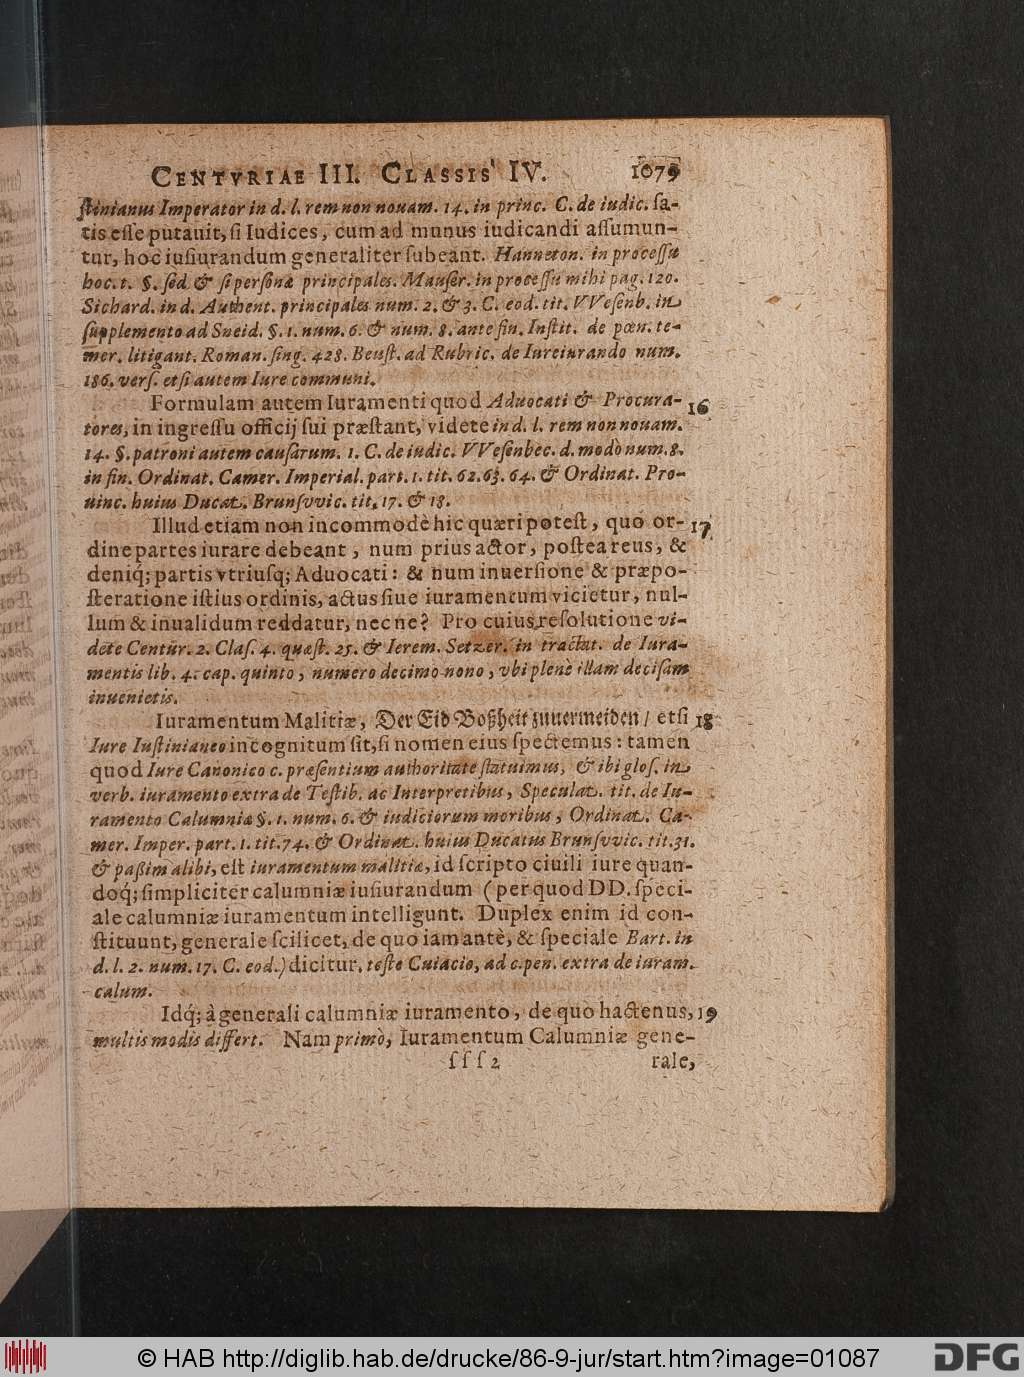 CENTVRIAE III. CLASSIS IV. 1079
ſtinianus Imperator in d. l. rem non nouam. 14. in princ. C. de iudic. ſa-
tis eſſe putauit, ſi Iudices, cum ad munus iudicandi aſſumun-
tur, hoc iuſiurandum generaliter ſubeant. Hanneton. in proceſſu
hoc. t. §. ſed & ſi perſonæ principales. Mauſer. in proceſſu mihi pag. 120.
Sichard. in d. Authent. principales num. 2. & 3. C. eod. tit. VVeſenb. in
ſupplemento ad Sneid. §. 1. num. 6. & num. 8. ante fin. Inſtit. de pœn. te-
mer. litigant. Roman. ſing. 428. Beuſt. ad Rubric. de Iureiurando num.
186. verſ. etſi autem Iure communi.
Formulam autem Iuramenti quod Aduocati & Procura- 16
tores, in ingreſſu officij ſui præſtant, videte in d. l. rem non nouam.
14. §. patroni autem cauſarum. 1. C. de iudic. VVeſenbec. d. modò num. 8.
in fin. Ordinat. Camer. Imperial. part. 1. tit. 62. 63. 64. & Ordinat. Pro-
uinc. huius Ducat. Brunſvvic. tit. 17. & 18.
Illud etiam non incommodè hic quæri poteſt, quo or- 17
dine partes iurare debeant, num prius actor, poſtea reus, &
deniq́; partis vtriuſq; Aduocati: & num inuerſione & præpo-
ſteratione iſtius ordinis, actus ſiue iuramentum vicietur, nul-
lum & inualidum reddatur, nec ne? Pro cuius reſolutione vi-
dete Centur. 2. Claſ. 4. quæſt. 25. & Ierem. Setzer. in tractat. de Iura-
mentis lib. 4. cap. quinto, numero decimo nono, vbi plenè illam deciſam
inuenietis.
Iuramentum Malitiæ, Der Eid Boßheit zuuermeiden / etſi 18
Iure Iuſtinianeo incognitum ſit, ſi nomen eius ſpectemus: tamen
quod Iure Canonico c. præſentium authoritate ſtatuimus, & ibi gloſ. in
verb. iuramento extra de Teſtib. ac Interpretibus, Speculat. tit. de Iu-
ramento Calumniæ §. 1. num. 6. & iudiciorum moribus, Ordinat. Ca-
mer. Imper. part. 1. tit. 74. & Ordinat. huius Ducatus Brunſvvic. tit. 31.
& paßim alibi, eſt iuramentum malitiæ, id ſcripto ciuili iure quan-
doq́; ſimpliciter calumniæ iuſiurandum (per quod DD. ſpeci-
ale calumniæ iuramentum intelligunt. Duplex enim id con-
ſtituunt, generale ſcilicet, de quo iam antè, & ſpeciale Bart. in
d. l. 2. num. 17. C. eod.) dicitur, teſte Cuiacio, ad c. pen. extra de iuram.
calum.
Idq́; à generali calumniæ iuramento, de quo hactenus, 19
multis modis differt. Nam primò, Iuramentum Calumniæ gene-
ſſſ 2 rale,
© HAB http://diglib.hab.de/drucke/86-9-jur/start.htm?image=01087 DFG